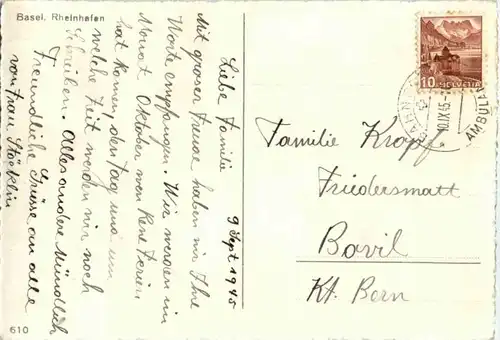 Basel, Rheinhafen
9 Sept 1945
Liebe Familie
Mit grosser Freude haben wir Ihre
Worte empfangen. Wir werden im
Monat Oktober wen Rene Ferien
hat kommen, den Tag und um
welche Zeit werden wir noch
Schreiben. Alles andere Mündlich
Freundliche Grüsse an alle
von Frau Stöcklin
610
10 HELVETIA
BAHN
10.IX.45
AMBULA
Familie Kropf
Friedersmatt
Bovil
Kt. Bern